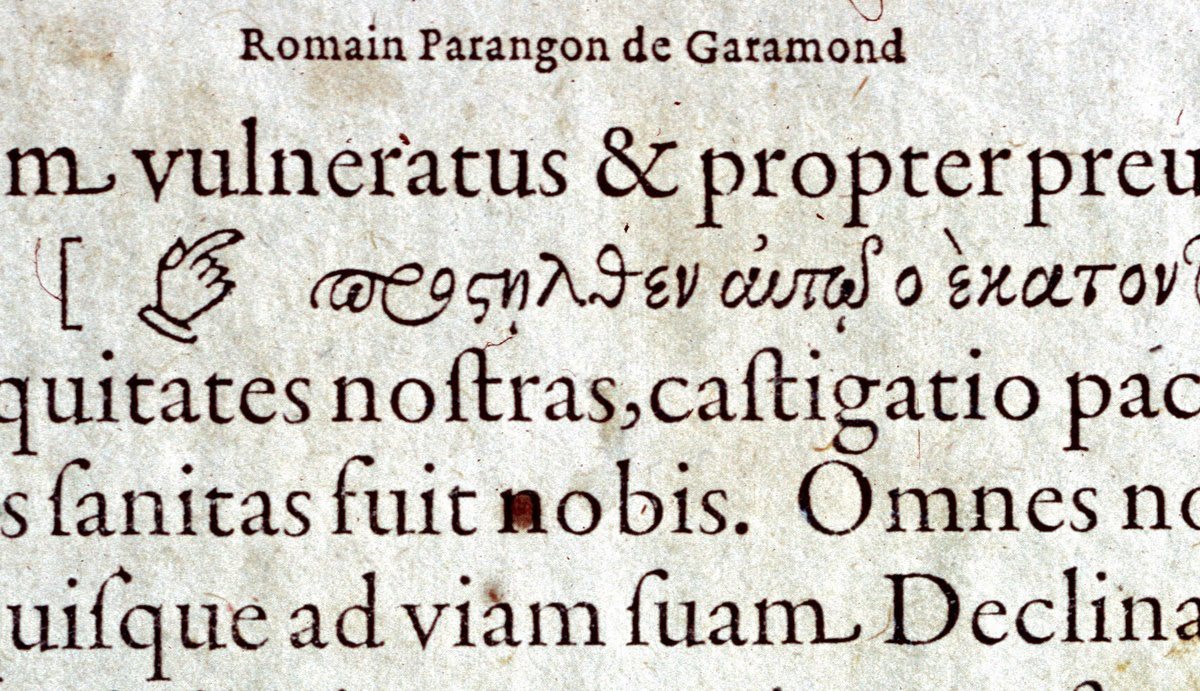 Romain Parangon de Garamond
m vulneratus & propter preu
[ ☞ ϖροςῃλθεν ο ὲκατον
quitates noſtras, caſtigatio pac
s ſanitas fuit nobis. Omnes no
uiſque ad viam ſuam Declina